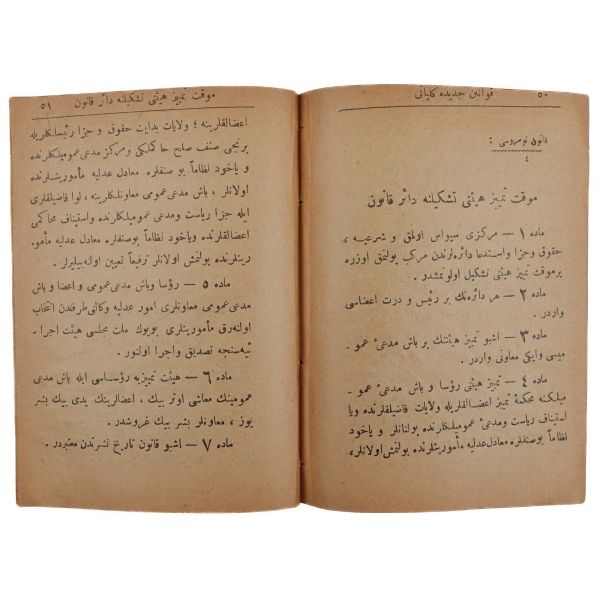 ٥٠ قوانین جدیده کلیاتی
قانون نومروسی :
٤
موقت تمییز هیئتی تشکیلنه دائر قانون
ماده ١ — مرکزی سیواس اولمق و شرعیه ،
حقوق و جزا و استدعا دائره‌لرندن مرکب بولنمق اوزره
بر موقت تمییز هیئتی تشکیل اولونمشدر .
ماده ٢ — هر دائره‌نك بر رئیس و درت اعضاسی
واردر .
ماده ٣ — اشبو تمییز هیئتنك بر باش مدعیٔ عمو-
میسی و ایکی معاونی واردر .
ماده ٤ — تمییز هیئتی رؤسا و باش مدعیٔ عمو-
میلکنه محکمهٔ تمییز اعضالقلریله ولایات قاضیلقلرنده ویا
استیناف ریاست ومدعیٔ عمومیلکلرنده بولنانلر و یاخود
نظاماً بوصنفلره معادل عدلیه مأموریتلرنده بولنمش اولانلر،
موقت تمییز هیئتی تشکیلنه دائر قانون ٥١
اعضالقلرینه ؛ ولایات بدایت حقوق و جزا رئیسلکلریله
برنجی صنف صلح حاکملکی و مرکز مدعی عمومیلکلرنده
و یاخود نظاماً بو صنفلره معادل عدلیه مأموریتلرنده
اولانلر ، باش مدعی‌عمومی معاونلکلرینه ، لوا قاضیلقلری
ایله جزا ریاست ومدعی عمومیلکلرنده واستیناف محاکمی
اعضالقلرنده ویاخود نظاماً بوصنفلره معادل عدلیه مأمو-
ریتلرنده بولنمش اولانلر ترفیعاً تعیین اولنه‌بیلیرلر .
ماده ٥ — رؤسا وباش مدعی‌عمومی و اعضا و باش
مدعی‌عمومی معاونلری امور عدلیه وکالتی طرفندن انتخاب
اولنه‌رق مأموریتلری بویوك ملت مجلسی هیئت اجرا-
ئیه‌سنجه تصدیق و اجرا اولنور .
ماده ٦ — هیئت تمییزیه رؤساسی ایله باش مدعی
عمومینك معاشی اوتر بیك ، اعضالرینك یدی بیك بشر
یوز ، معاونلر بشر بیك غروشدر .
ماده ٧ — اشبو قانون تاریخ نشرندن معتبردر .